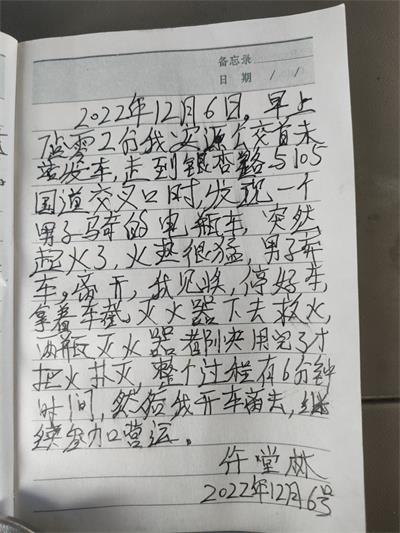 备忘录
日 期 / /
2022年12月6日，早上
7点零2分我
车，走到银杏路与105
国道交叉口时，发现一个
男子骑的电瓶车，突然
起火了，火热很猛，男子弃
车，离开，我见状，停好车，
拿着车载灭火器下去救火，
两瓶灭火器都快用完了才
把火扑灭，整个过程有6分钟
时间，然后我开车离去，继
续参加营运。
许堂林
2022年12月6号